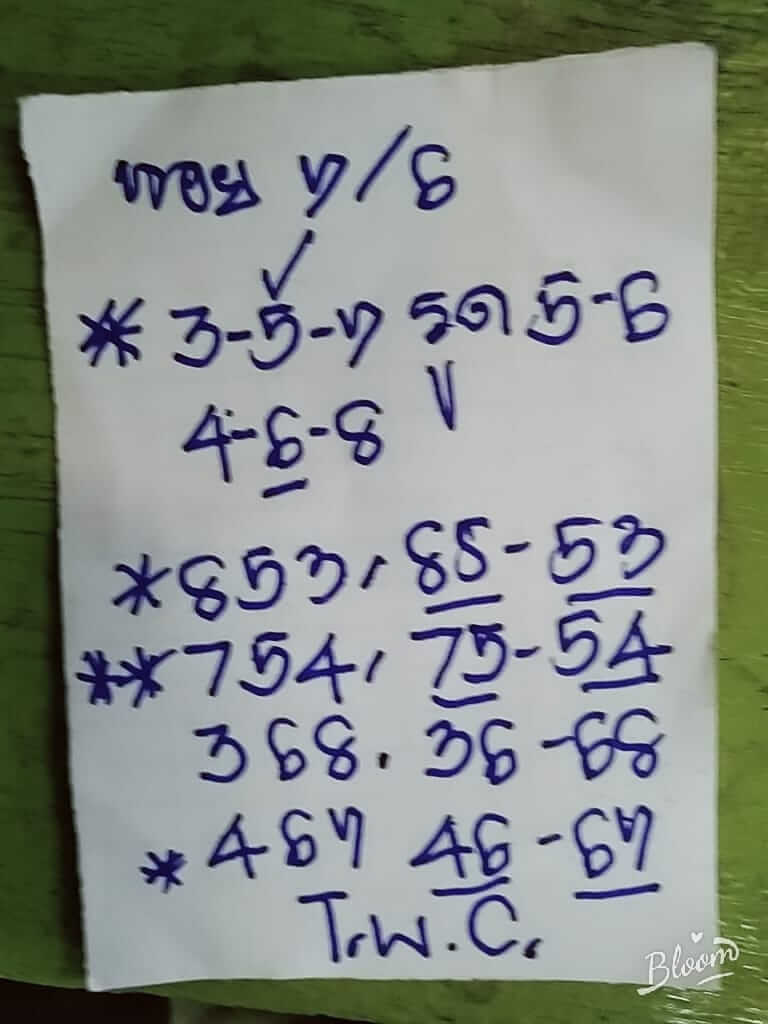 7/6
✓
* 3-5-7 รด 5-6
4-6-8 ✓
*853, 85-53
**754, 75-54
368. 36-68
*467 46-67
T.W.C.
Bloom